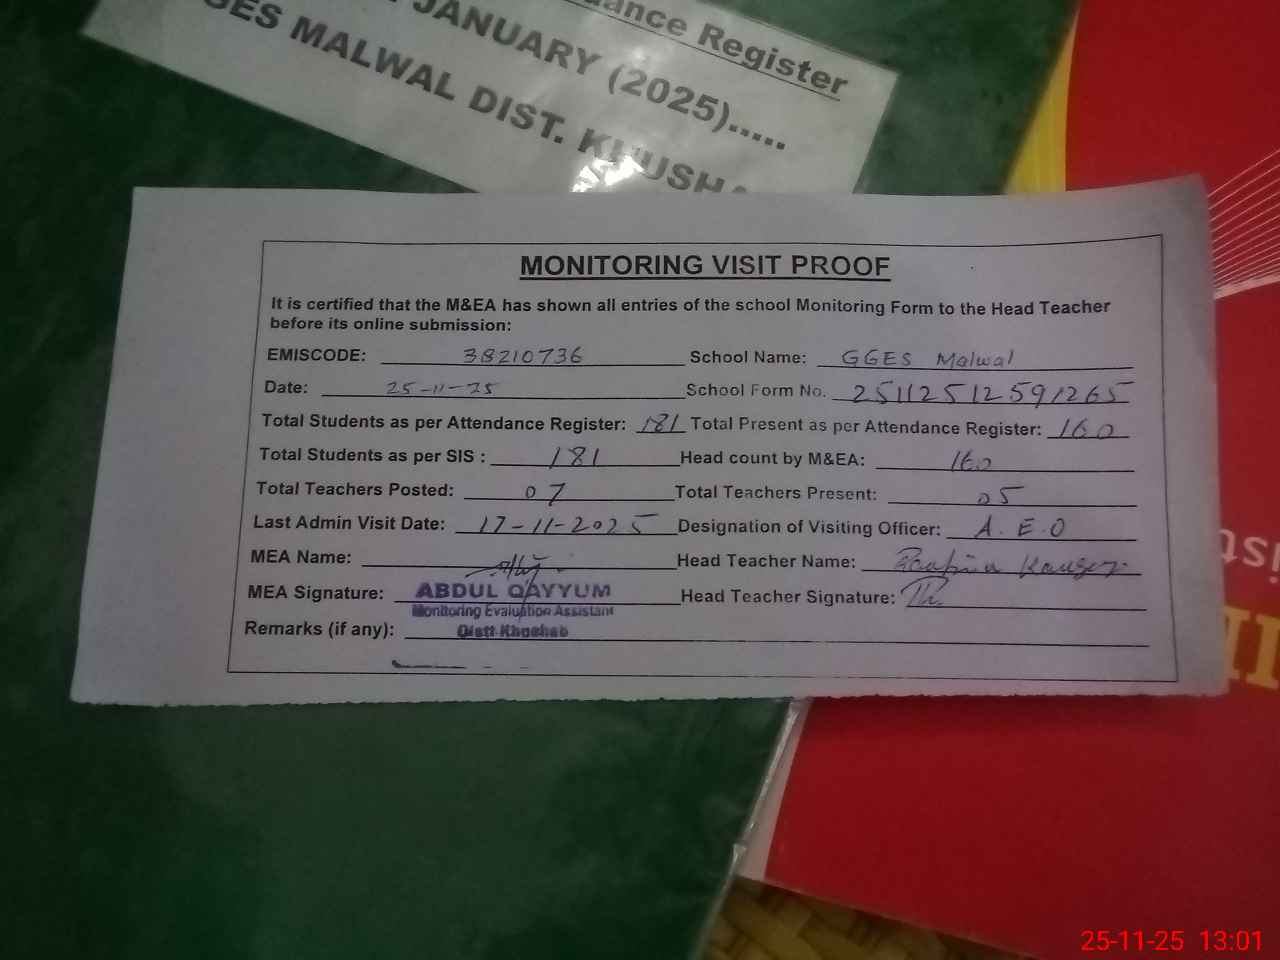 ance Register
JANUARY (2025).....
GES MALWAL DIST. KHUSHA
MONITORING VISIT PROOF
It is certified that the M&EA has shown all entries of the school Monitoring Form to the Head Teacher
before its online submission:
EMISCODE: 38210736 School Name: GGES Malwal
Date: 25-11-25 School Form No. 25112512591265
Total Students as per Attendance Register: 181 Total Present as per Attendance Register: 160
Total Students as per SIS : 181 Head count by M&EA: 160
Total Teachers Posted: 07 Total Teachers Present: 05
Last Admin Visit Date: 17-11-2025 Designation of Visiting Officer: A.E.O
MEA Name: Head Teacher Name: Kausar
MEA Signature: ABDUL QAYYUM Head Teacher Signature:
Monitoring Evaluation Assistant
Remarks (if any): Distt Khushab
25-11-25 13:01